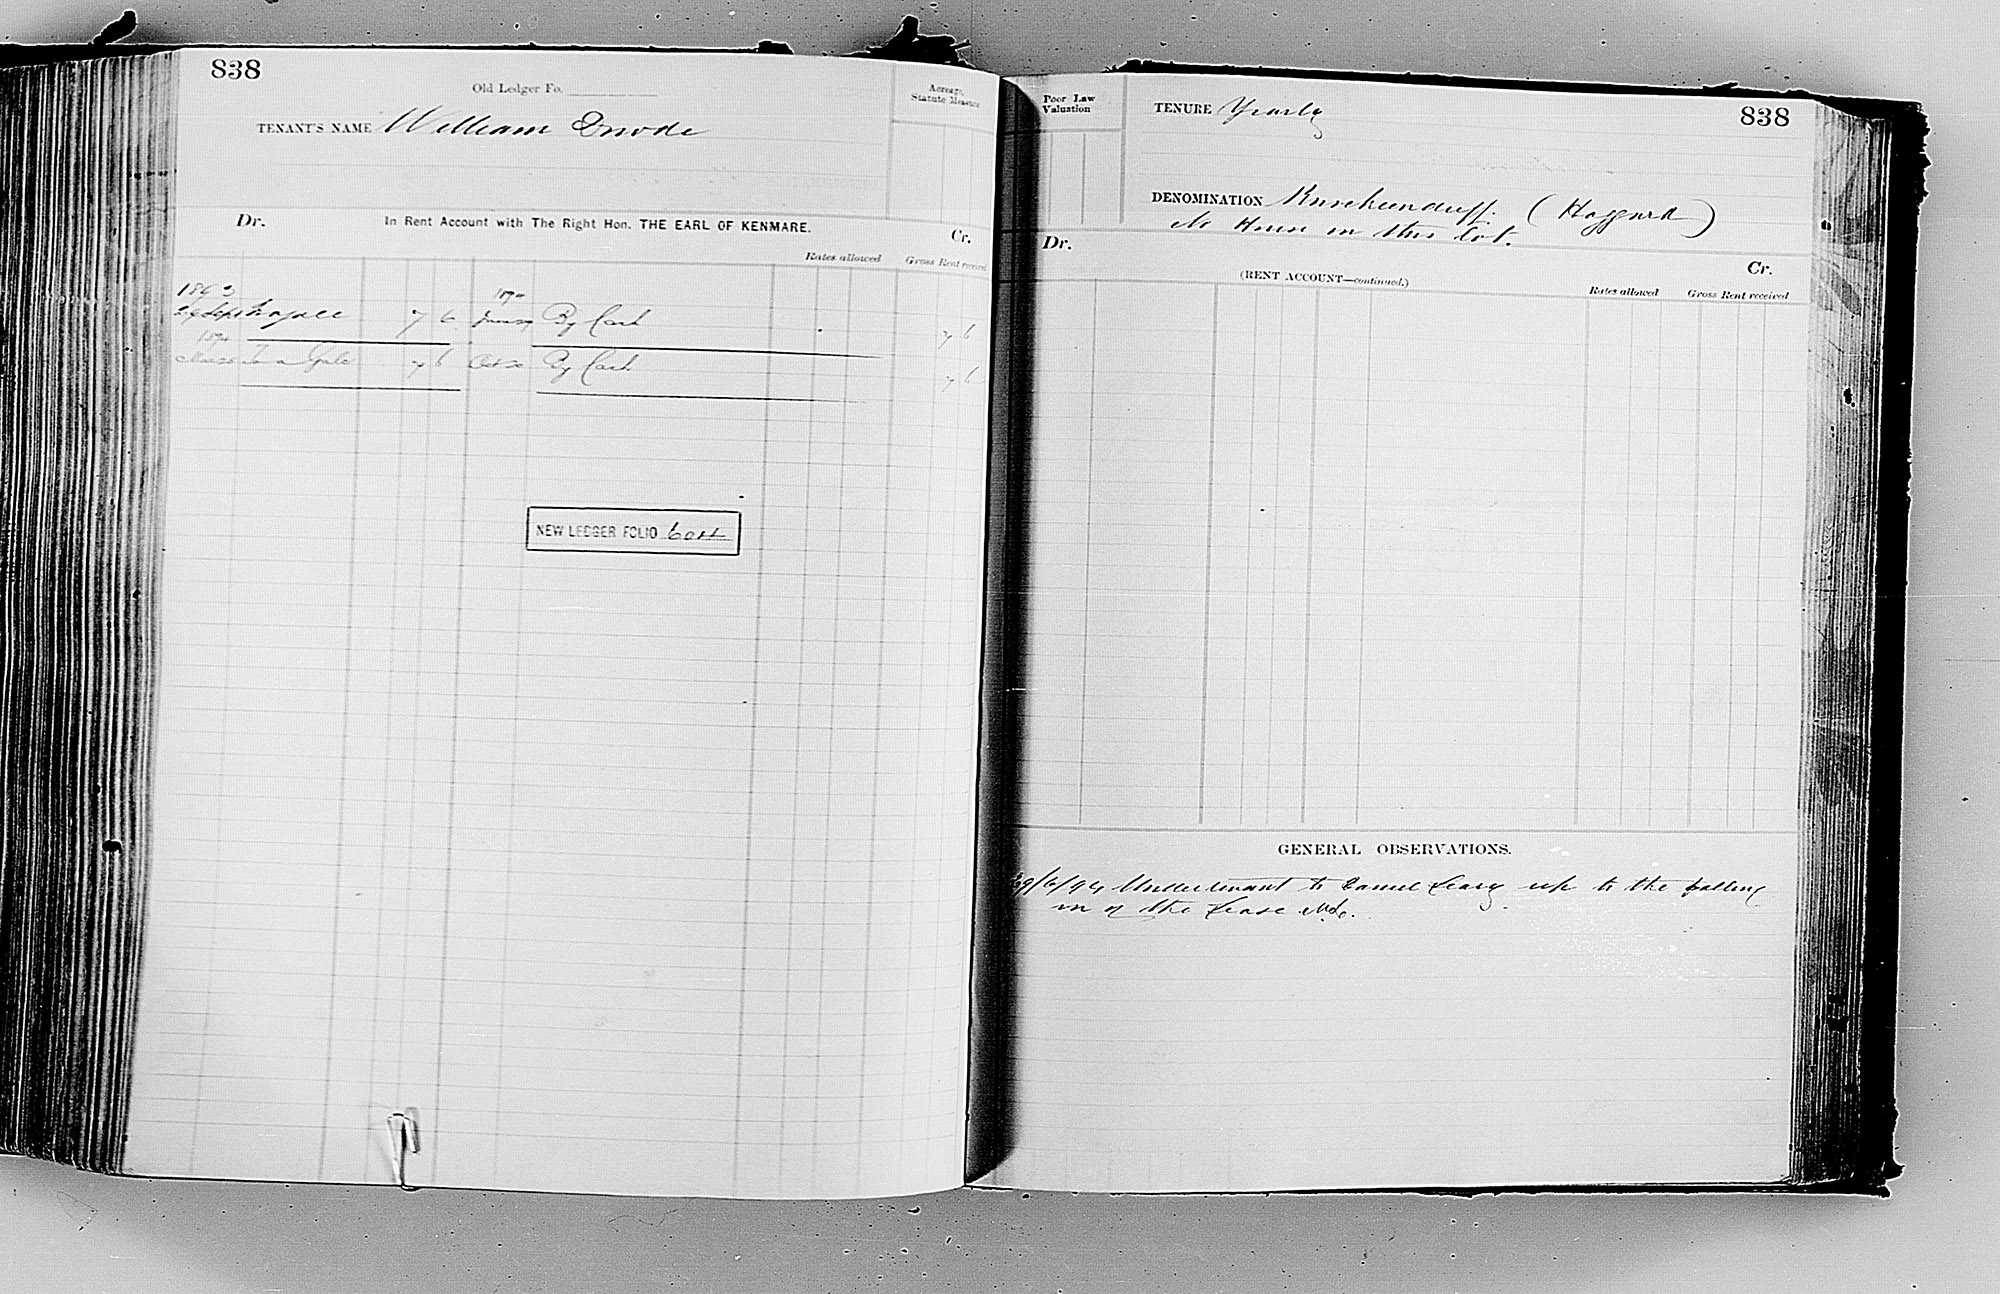 838
Old Ledger Fo.
Acreage, Statute Measure
TENANT'S NAME William
Dr. In Rent Account with The Right Hon. THE EARL OF KENMARE. Cr.
Rates allowed Gross Rent received
1893 189
7 6 By Cash 7 6
189
To a Gale 7 6 Oct By Cash 7 6
NEW LEDGER FOLIO
Poor Law Valuation
TENURE Yearly 838
DENOMINATION (Haggard)
No House on this lot.
Dr. Cr.
(RENT ACCOUNT—continued.)
Rates allowed Gross Rent received
GENERAL OBSERVATIONS.
29/6/94 Undertenant to Daniel Leary up to the falling
in of the Lease